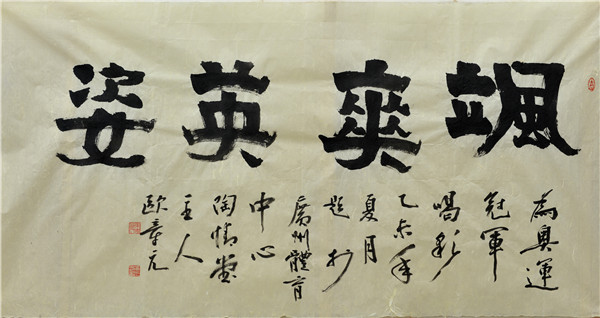 颯爽英姿
為奧運
冠軍
喝彩
乙未年
夏月
題扵
廣州體育
中心
陶情堂
主人
歐章元